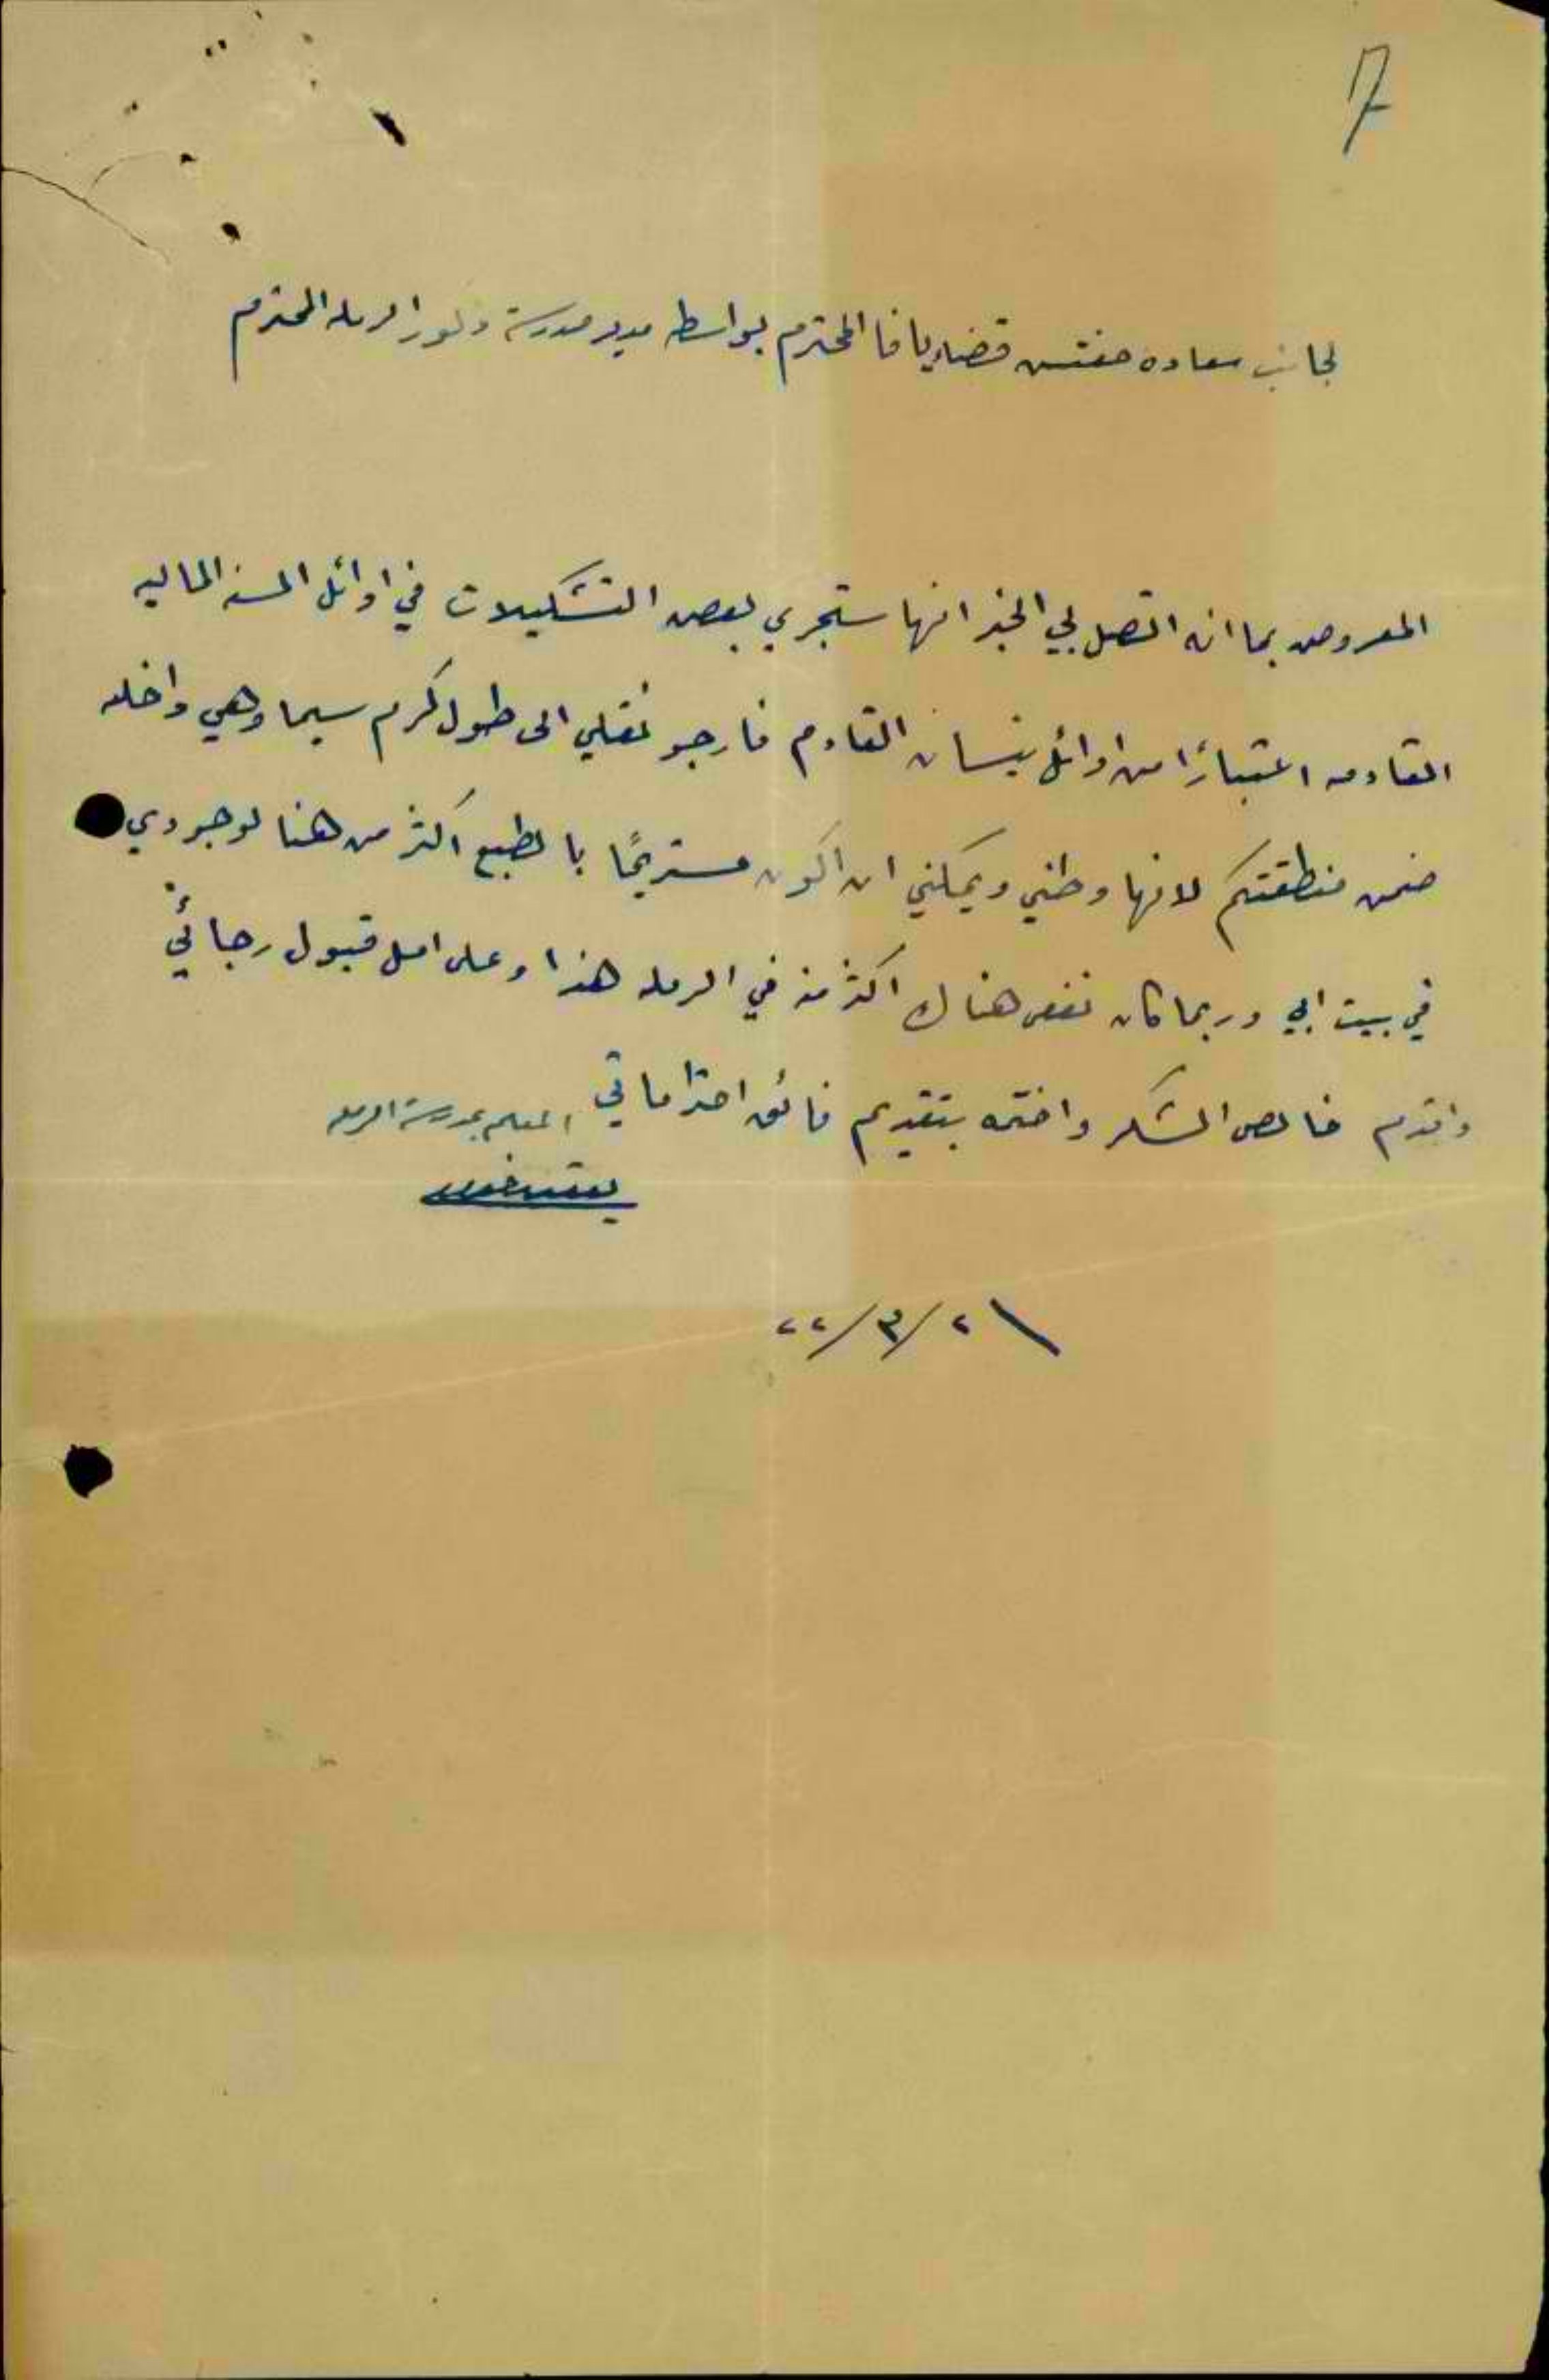 7
لجانب سعاده مفتش قضاء يافا المحترم بواسطه مدير مدرسة ذكور الرمله المحترم
المعروض بما انه اتصل بي الخبر انها ستجري بعض التشكيلات في اوائل السنه الماليه
القادمه اعتبارًا من اوائل نيسان القادم فارجو نقلي الى طول كرم سيما وهي داخله
ضمن منطقتكم لانها وطني ويمكنني ان اكون مستريحًا بالطبع اكثر من هنا لوجودي
في بيت ابي وربما كان نفعي هناك اكثر منه في الرمله هذا وعلى امل قبول رجائي
واقدم خالص الشكر واختمه بتقديم فائق احتراماتي المعلم بمدرسة الرمله
٢١/٣/٢٢